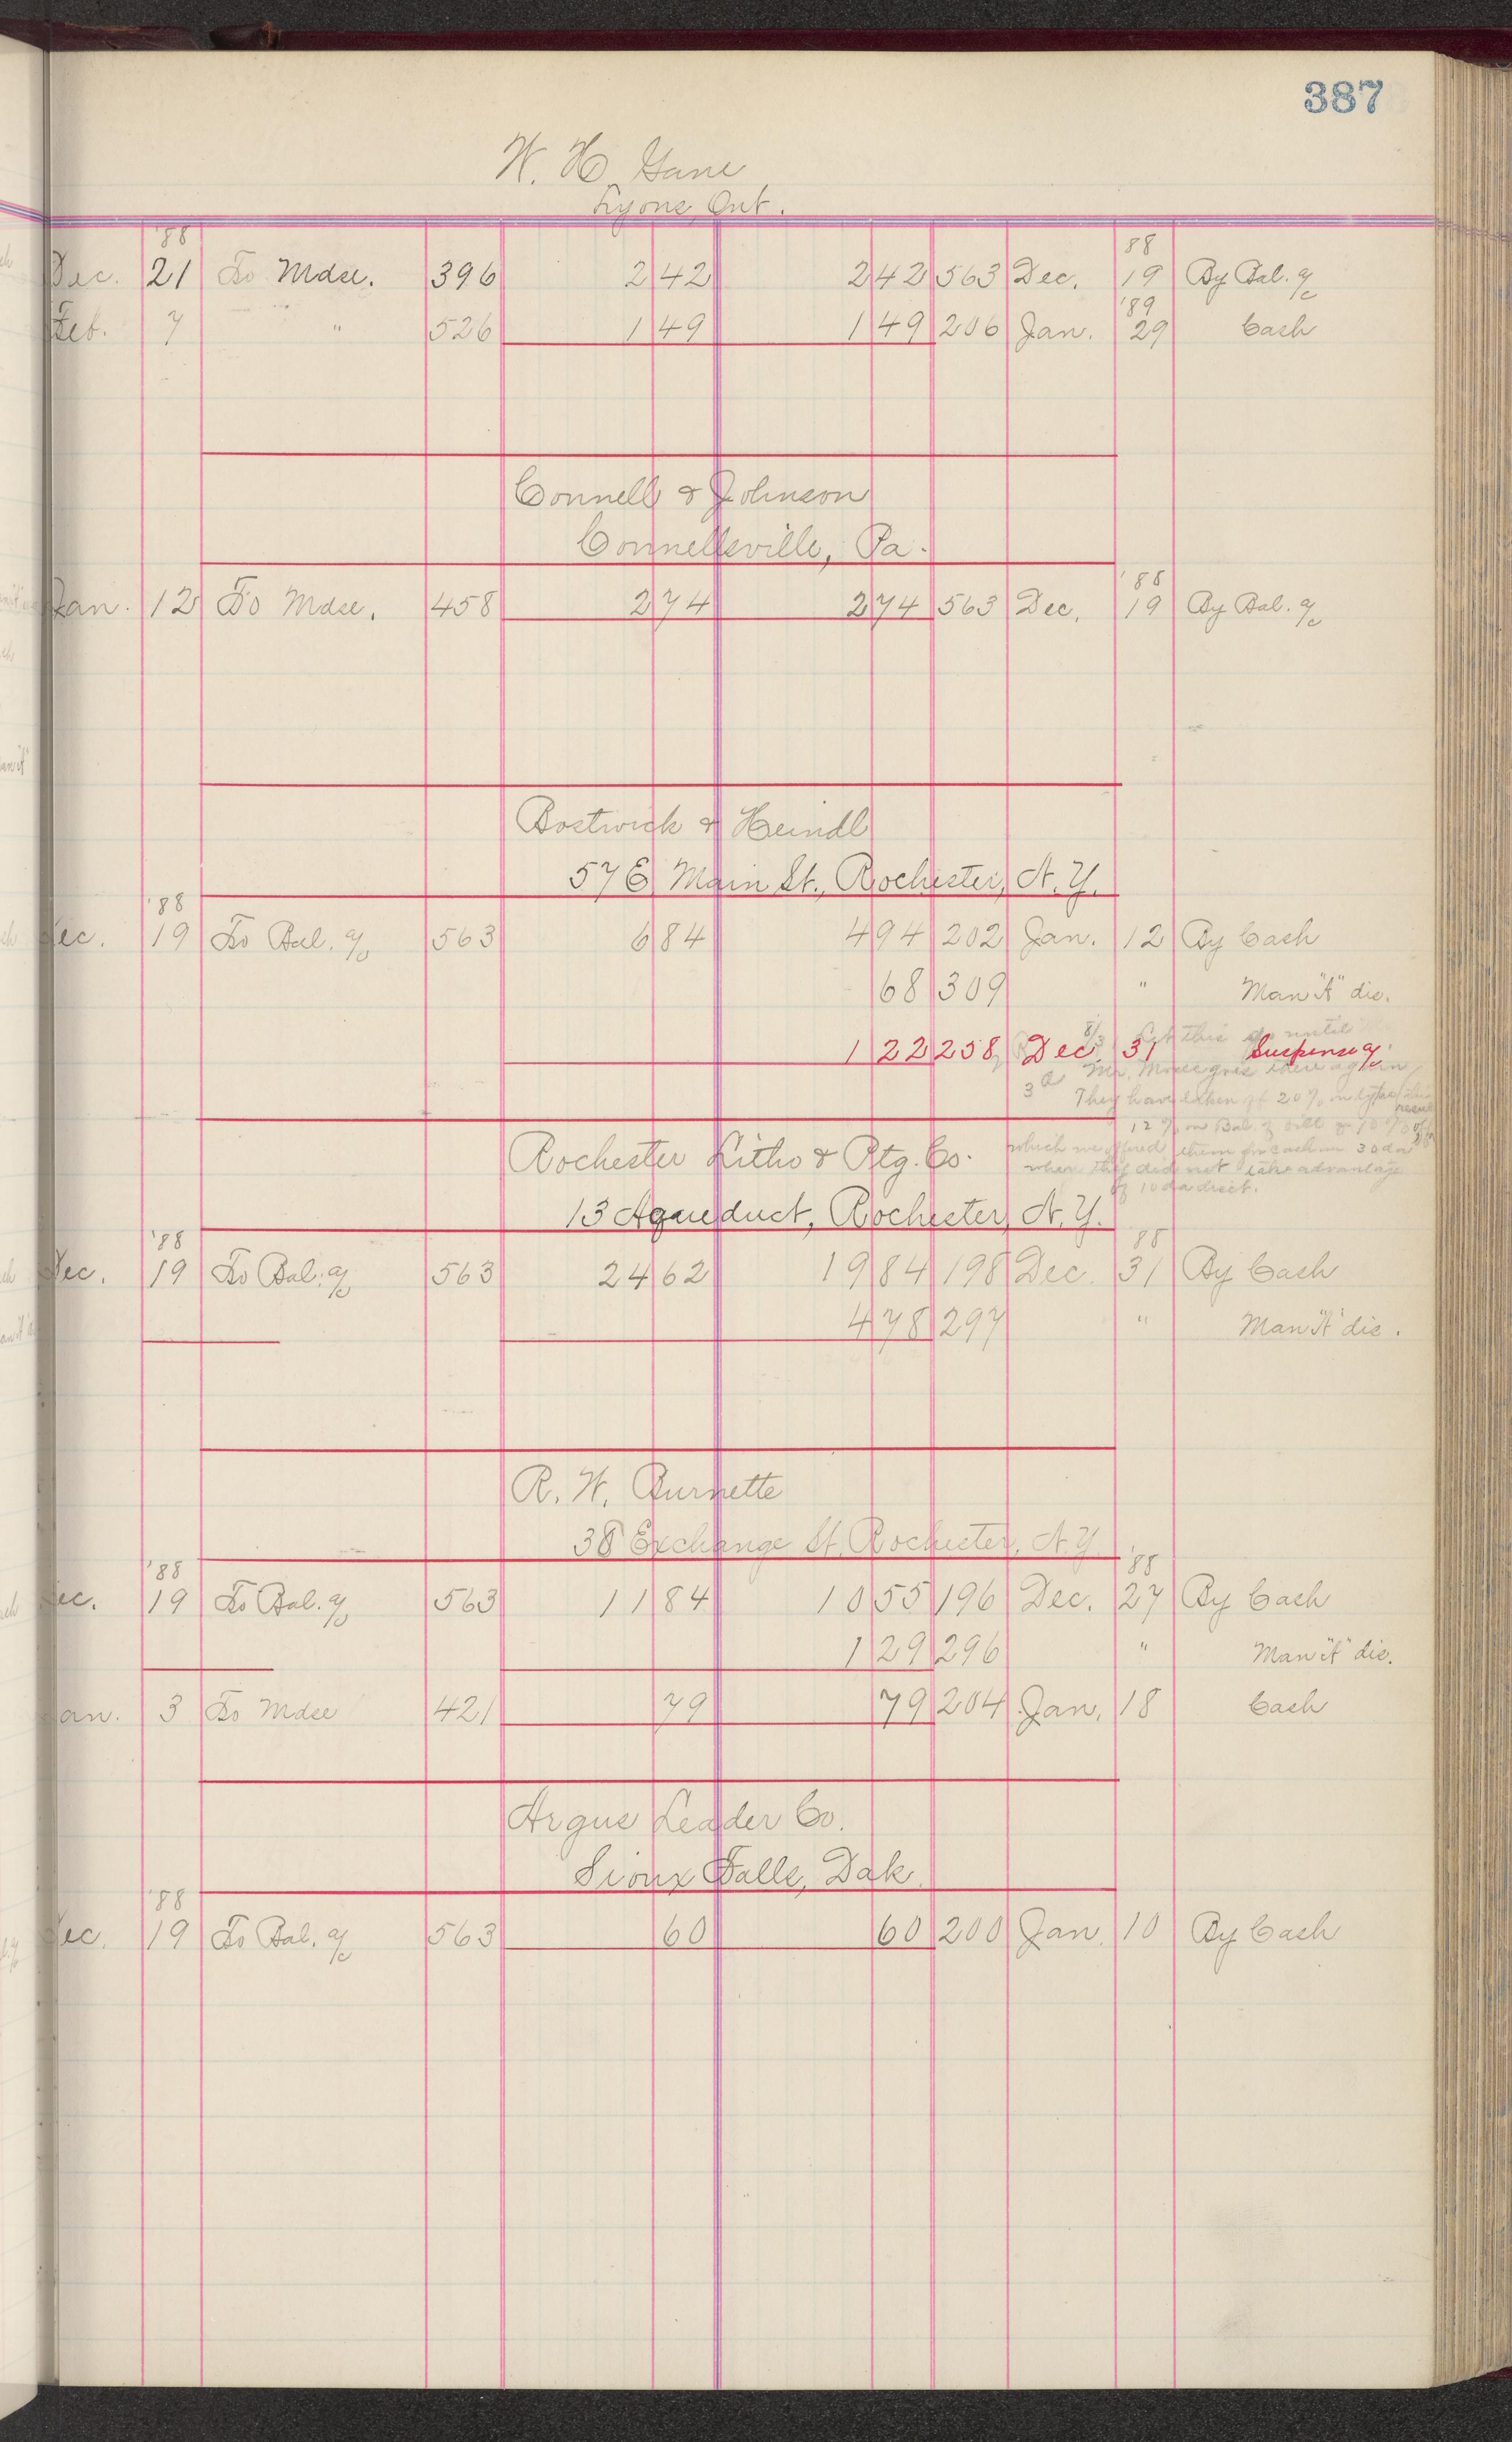 387
W. H. Gane
Lyons, Ont.
'88 88
Dec. 21 To Mdse. 396 2 42 2 42 563 Dec. 19 By Bal. a/c
'89
Feb. 7 " 526 1 49 1 49 206 Jan. 29 Cash
Connell & Johnson
Connellsville, Pa.
'88
Jan. 12 To Mdse. 458 2 74 2 74 563 Dec. 19 By Bal. a/c
Bostwick & Heindl
57 E Main St., Rochester, N. Y.
'88
Dec. 19 To Bal. a/c 563 6 84 4 94 202 Jan. 12 By Cash
68 309 " Man "A" dis.
8/3 Let this go until
1 22 258 Dec. 31 Suspense a/c
Mr. Morse goes there again
They have taken off 20% on
12% on Bal. of bill
which we offered them for cash in 30 da
when they did not take advantage
of 10 da disct.
Rochester Litho & Ptg. Co.
13 Aqueduct, Rochester, N. Y.
'88 88
Dec. 19 To Bal. a/c 563 24 62 19 84 198 Dec. 31 By Cash
4 78 297 " Man "A" dis.
R. W. Burnette
38 Exchange St. Rochester, N. Y.
'88 '88
Dec. 19 To Bal. a/c 563 11 84 10 55 196 Dec. 27 By Cash
1 29 296 " Man "A" dis.
Jan. 3 To Mdse 421 79 79 204 Jan. 18 Cash
Argus Leader Co.
Sioux Falls, Dak.
'88
Dec. 19 To Bal. a/c 563 60 60 200 Jan. 10 By Cash